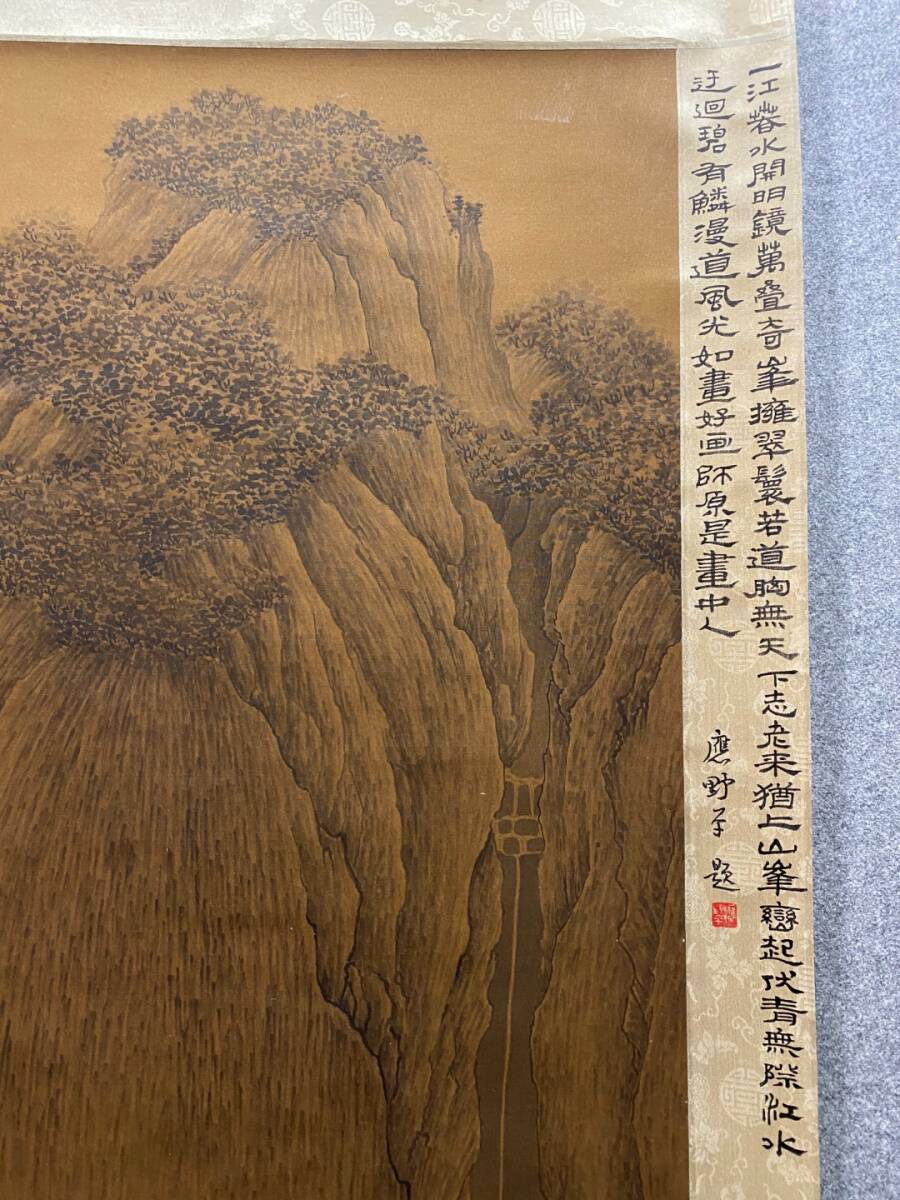 一江春水開明鏡萬疊奇峯擁翠鬟若道胸無天下志老来猶上山峯巒起伏青無際江水
迂迴碧有鱗漫道風光如畫好画師原是畫中人
應野平題